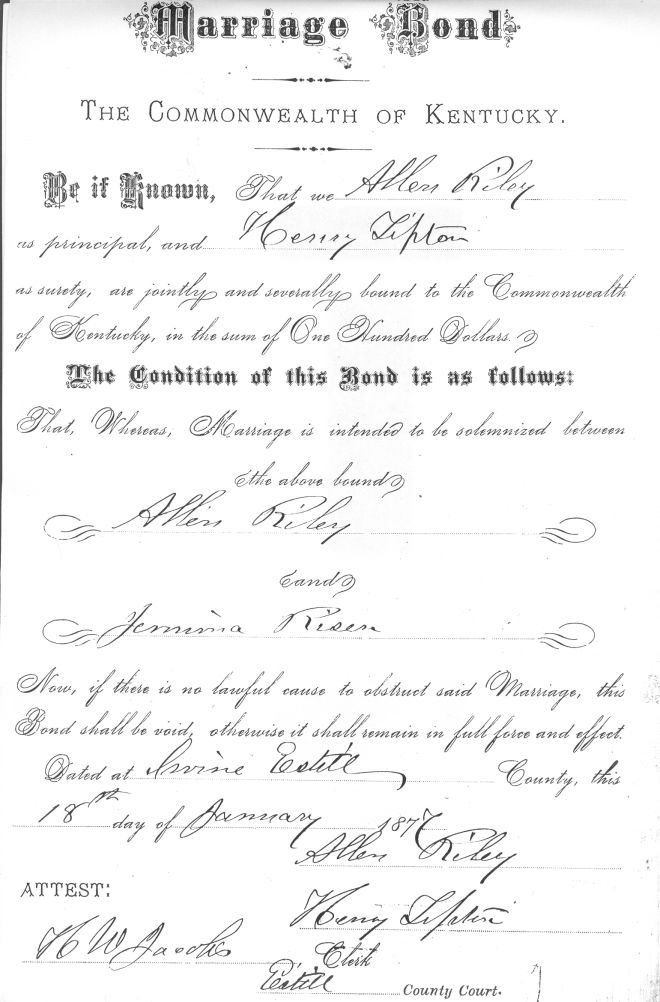 Marriage Bond
THE COMMONWEALTH OF KENTUCKY.
Be it Known, That we Allen Riley
as principal, and Henry Tipton
as surety, are jointly and severally bound to the Commonwealth
of Kentucky, in the sum of One Hundred Dollars.
The Condition of this Bond is as follows:
That, Whereas, Marriage is intended to be solemnized between
the above bound
Allen Riley
and
Jemima Risen
Now, if there is no lawful cause to obstruct said Marriage, this
Bond shall be void, otherwise it shall remain in full force and effect.
Dated at Irvine Estill County, this
18th day of January 1877
Allen Riley
ATTEST:
Henry Tipton
H W Jacobs Clerk
Estill County Court.